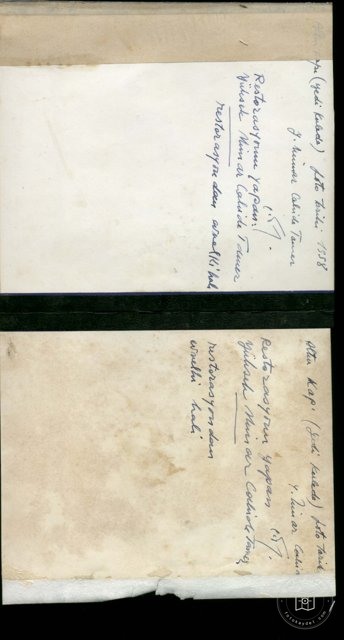 Altın Kapı (Yedi Kulede) foto tarihi 1958
Y. Mimar Cahide Tamer
Restorasyonu yapan:
Yüksek Mimar Cahide Tamer
restorasyondan evvelki hali
Altın Kapı (Yedi Kulede) foto tarih
Y. Mimar Cahide
Restorasyonu yapan
Yüksek Mimar Cahide Tamer
restorasyondan
evvelki hali